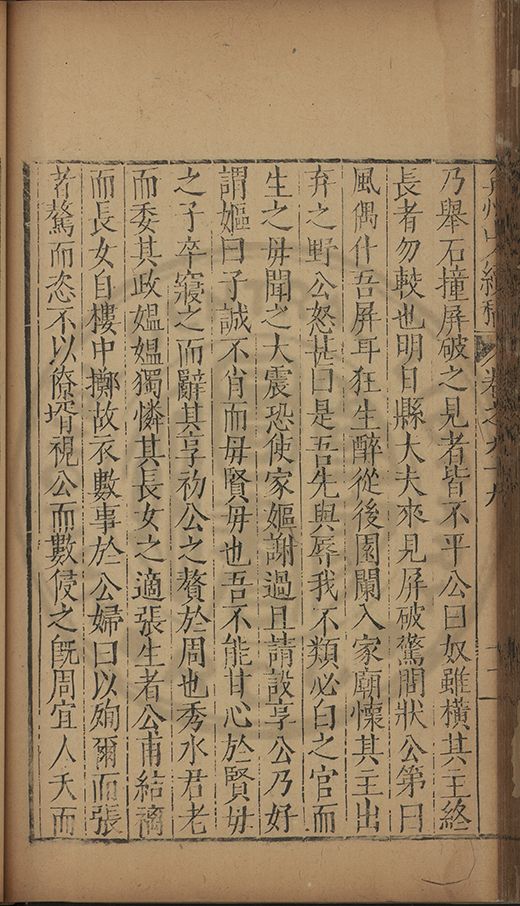 卷之九十九
乃舉石撞屏破之見者皆不平公曰奴雖橫其主終
長者勿較也明日縣大夫來見屏破驚問狀公第曰
風偶仆吾屏耳狂生醉從後園闌入家廟懷其主出
弃之野公怒甚曰是吾先與辱我不類必白之官而
生之毋聞之大震恐使家嫗謝過且請設享公乃好
謂嫗曰子誠不肖而毋賢毋也吾不能甘心於賢毋
之子卒寢之而辭其享初公之贅於周也秀水君老
而委其政媪媪獨憐其長女之適張生者公甫結褵
而長女自樓中擲故衣數事於公婦曰以殉爾而張
者驁而恣不以僚壻視公而數侵之旣周宜人夭而